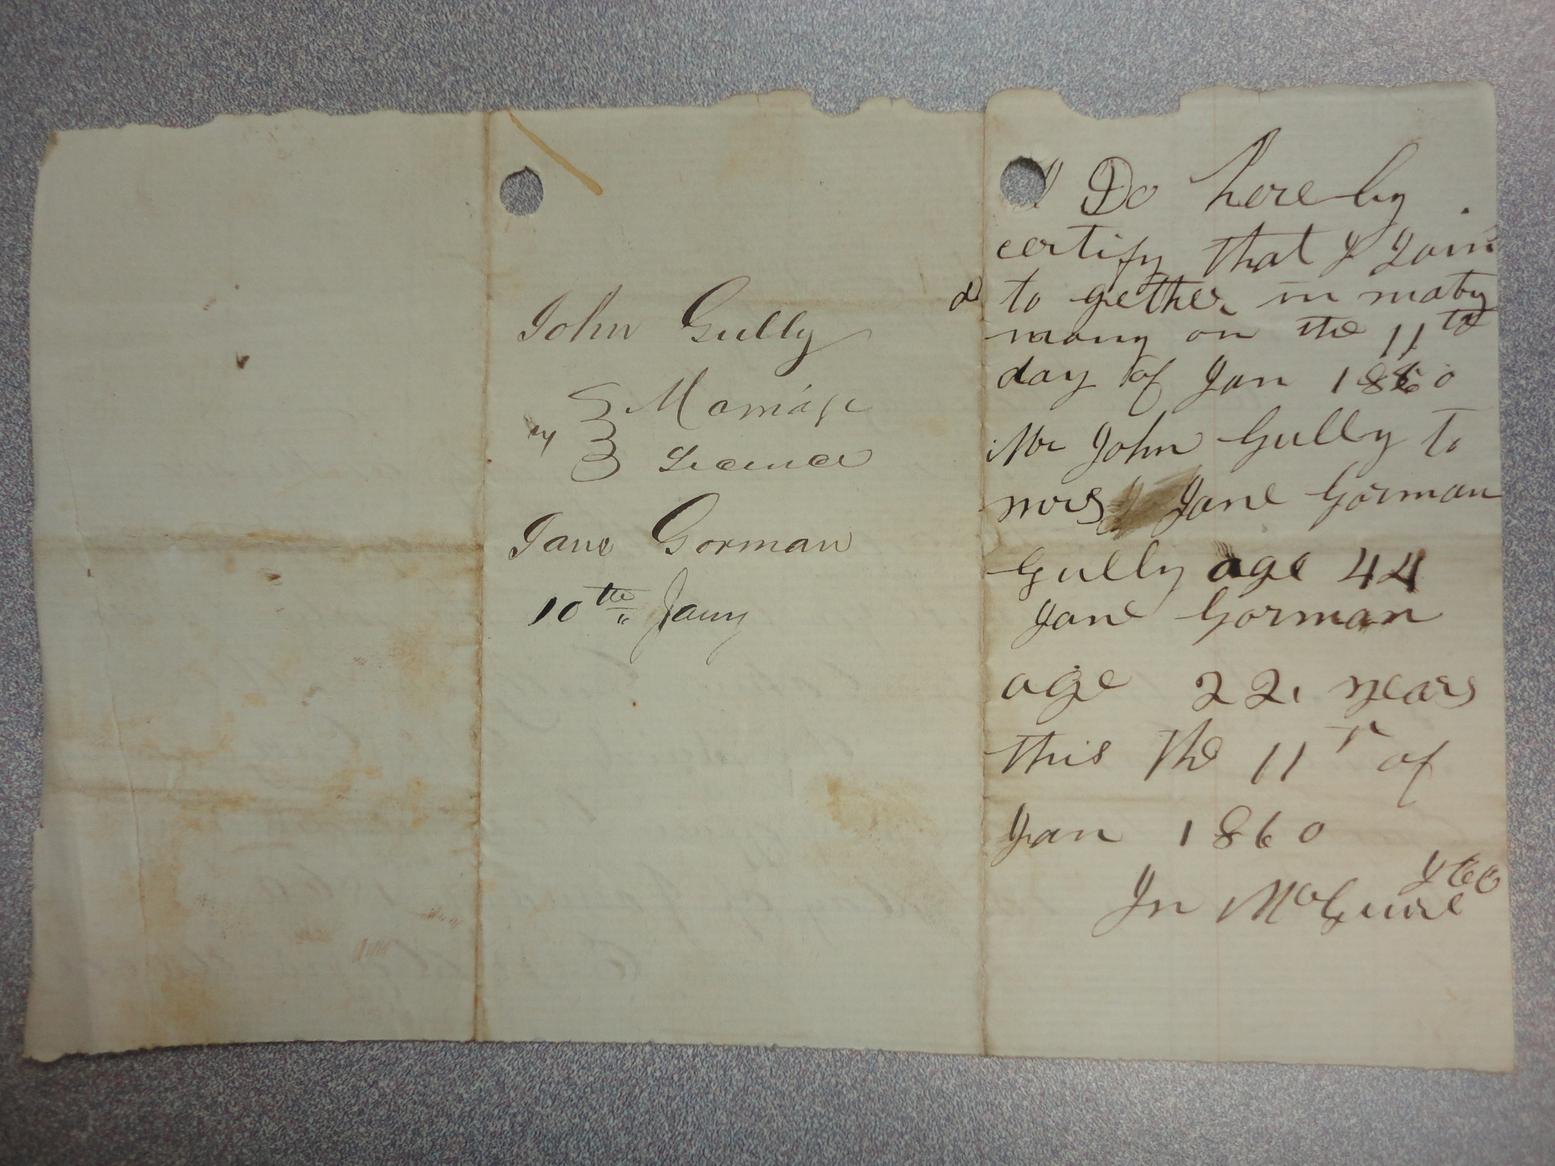 John Gully
Marriage
License
Jane Gorman
10th Jany
I Do here by
certify that I Join
d to gether in matry
mony on the 11th
day of Jan 1860
Mr John Gully to
mrs Jane Gorman
Gully age 44
Jane Gorman
age 22. years
this the 11th of
Jan 1860
Jn McGuire